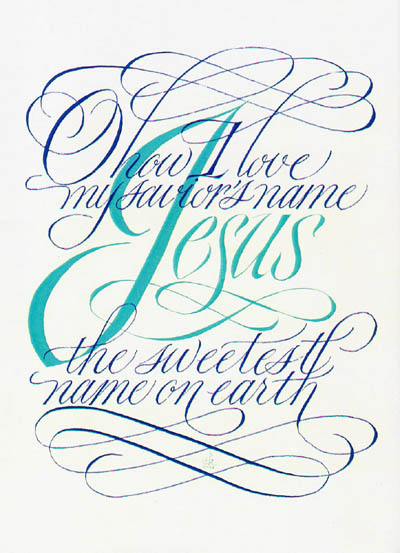 O how I love
my savior's name
Jesus
the sweetest
name on earth